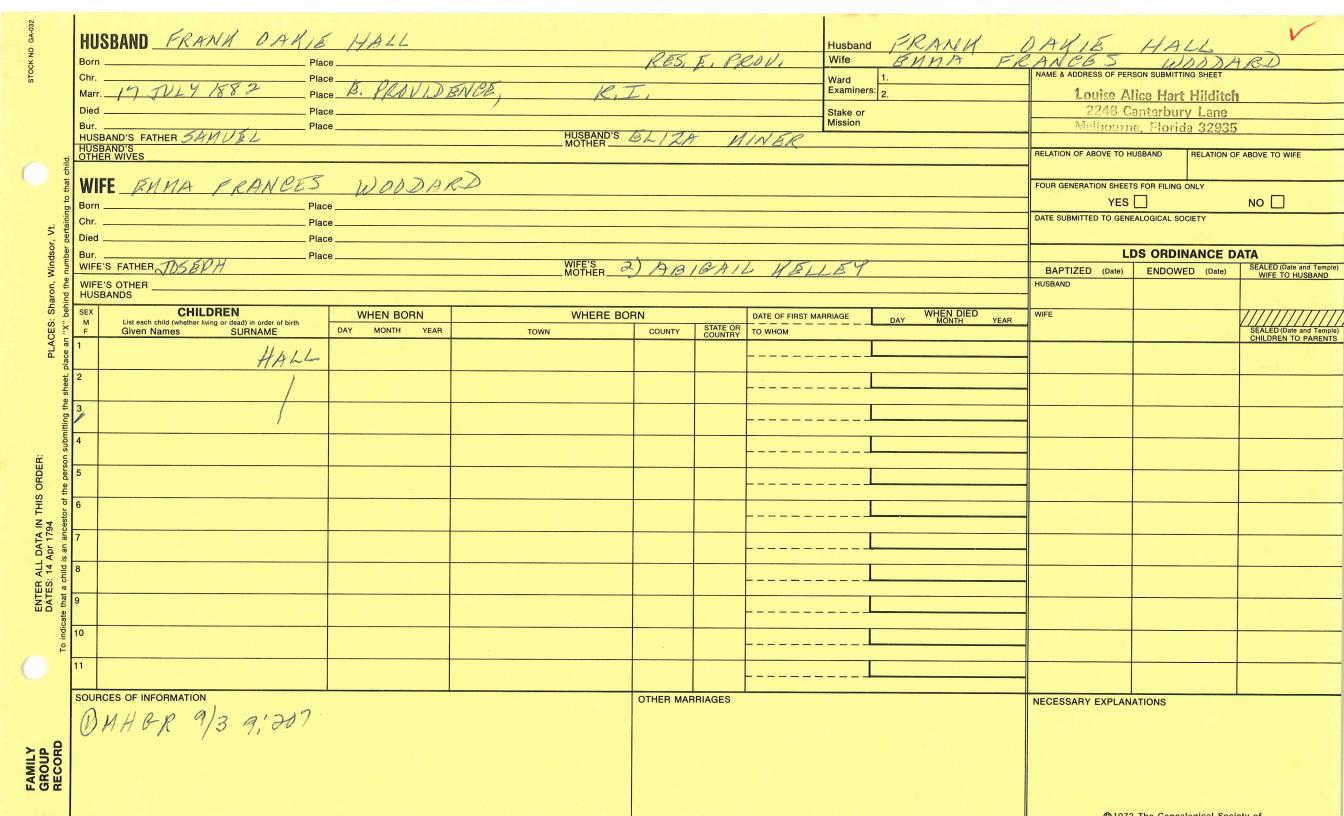 STOCK NO. GA-032
HUSBAND FRANK OAKIE HALL
Born Place RES. E. PROV.
Chr. Place
Marr. 17 JULY 1882 Place E. PROVIDENCE, R.I.
Died Place
Bur. Place
HUSBAND'S FATHER SAMUEL HUSBAND'S MOTHER ELIZA MINER
HUSBAND'S OTHER WIVES
WIFE EMMA FRANCES WOODARD
Born Place
Chr. Place
Died Place
Bur. Place
WIFE'S FATHER JOSEPH WIFE'S MOTHER 2) ABIGAIL KELLEY
WIFE'S OTHER HUSBANDS
Husband FRANK OAKIE HALL
Wife EMMA FRANCES WOODARD
Ward 1.
Examiners: 2.
Stake or
Mission
NAME & ADDRESS OF PERSON SUBMITTING SHEET
Louise Alice Hart Hilditch
2246 Canterbury Lane
Melbourne, Florida 32935
RELATION OF ABOVE TO HUSBAND RELATION OF ABOVE TO WIFE
FOUR GENERATION SHEETS FOR FILING ONLY
YES NO
DATE SUBMITTED TO GENEALOGICAL SOCIETY
LDS ORDINANCE DATA
BAPTIZED (Date) ENDOWED (Date) SEALED (Date and Temple) WIFE TO HUSBAND
HUSBAND
WIFE
SEALED (Date and Temple)
CHILDREN TO PARENTS
SEX
M
F
CHILDREN
List each child (whether living or dead) in order of birth
Given Names SURNAME
WHEN BORN
DAY MONTH YEAR
WHERE BORN
TOWN COUNTY STATE OR COUNTRY
DATE OF FIRST MARRIAGE
TO WHOM
WHEN DIED
DAY MONTH YEAR
1 HALL
2
3
4
5
6
7
8
9
10
11
SOURCES OF INFORMATION
① MHGR 9/3 9:207
OTHER MARRIAGES
NECESSARY EXPLANATIONS
©1972 The Genealogical Society of
ENTER ALL DATA IN THIS ORDER:
DATES: 14 Apr 1794
PLACES: Sharon, Windsor, Vt.
To indicate that a child is an ancestor of the person submitting the sheet, place an "X" behind the number pertaining to that child.
FAMILY
GROUP
RECORD